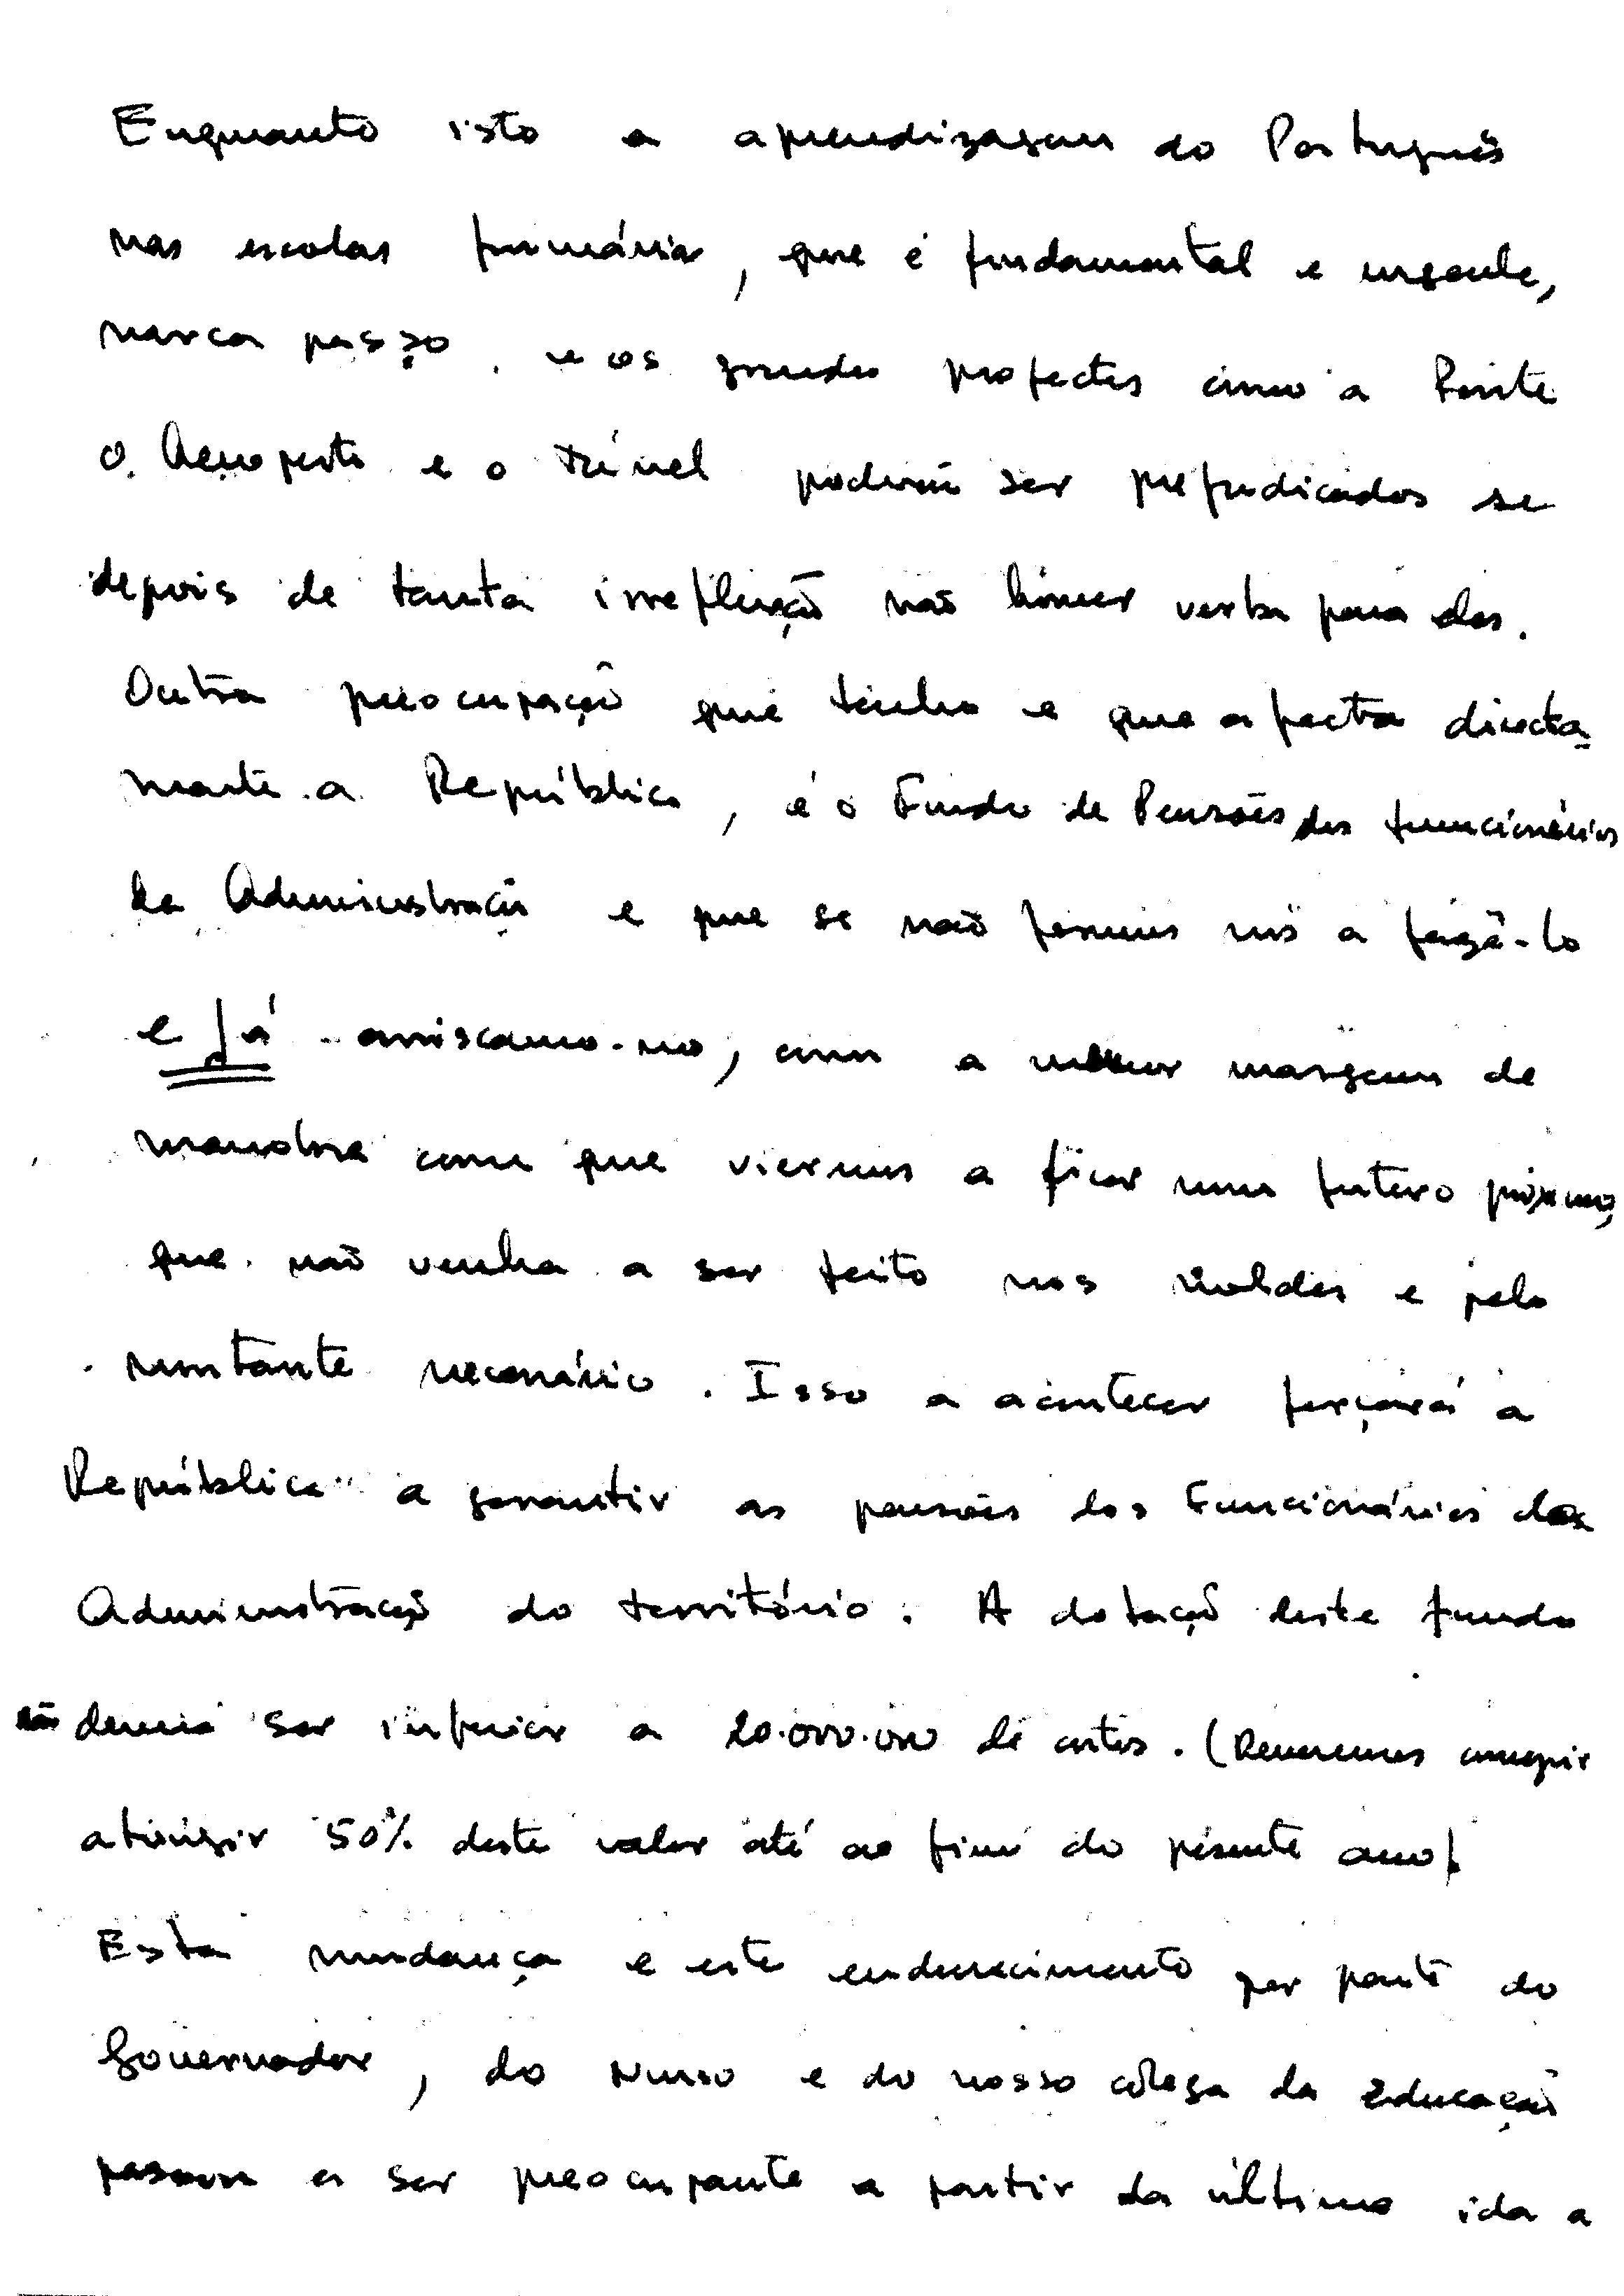 Enquanto isto a aprendizagem do Português
nas escolas primárias, que é fundamental e urgente,
marca passo, e os grandes projectos como a Ponte
o Aeroporto e o túnel poderão ser prejudicados se
depois de tanta irreflexão não houver verba para eles.
Outra preocupação que tenho e que afecta directa-
mente a República, é o Fundo de Pensões dos funcionários
da Administração e que se não formos nós a fazê-lo
e já - arriscamo-nos, com a menor margem de
manobra com que viermos a ficar num futuro próximo,
que não venha a ser feito nos moldes e pelo
montante necessário. Isso a acontecer forçará a
República a garantir as pensões dos Funcionários da
Administração do território. A dotação deste fundo
não deveria ser inferior a 20.000.000 de contos. (Devemos conseguir
atingir 50% deste valor até ao fim do presente ano)
Esta mudança e este endurecimento por parte do
Governador, do Nuno e do nosso colega da Educação
passou a ser preocupante a partir da última ida a